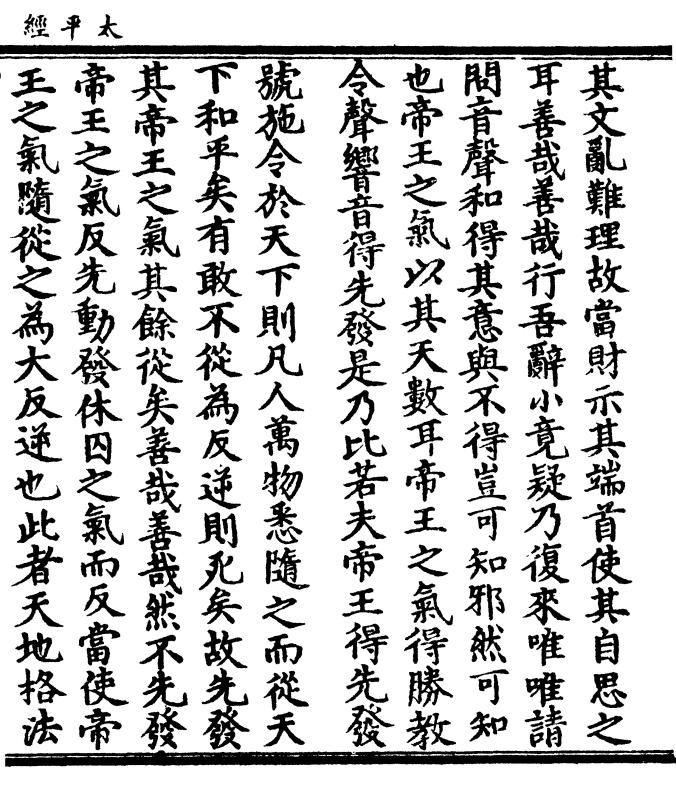 太平經
其文亂難理故當財示其端首使其自思之
耳善哉善哉行吾辭小竟疑乃復來唯唯請
問音聲和得其意與不得豈可知邪然可知
也帝王之氣以其天數耳帝王之氣得勝教
令聲響音得先發是乃比若夫帝王得先發
號施令於天下則凡人萬物悉隨之而從天
下和平矣有敢不從為反逆則死矣故先發
其帝王之氣其餘從矣善哉善哉然不先發
帝王之氣反先動發休囚之氣而反當使帝
王之氣隨從之為大反逆也此者天地格法